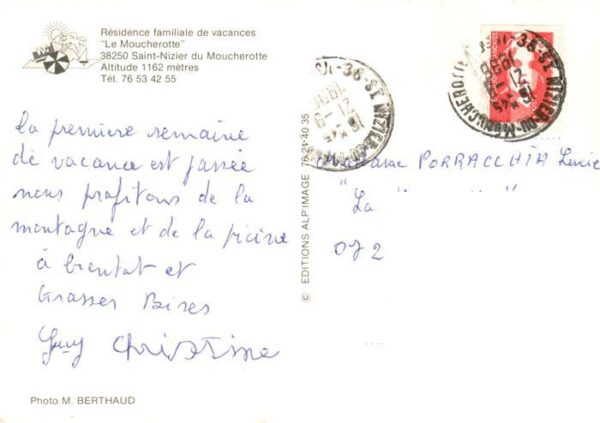 Résidence familiale de vacances
"Le Moucherotte"
38250 Saint-Nizier du Moucherotte
Altitude 1162 mètres
Tél. 76 53 42 55
La première semaine
de vacance est passée
nous profitons de la
montagne et de la picine
à bientat et
Grasses Bises
Guy Christine
Photo M. BERTHAUD
© EDITIONS ALP'IMAGE 76 21 40 35
38-ST NIZIER-DU-MOUCHEROTTE
16 H 45
21-9
1996
Madame PORRACCHIA Lucie
"La "
072